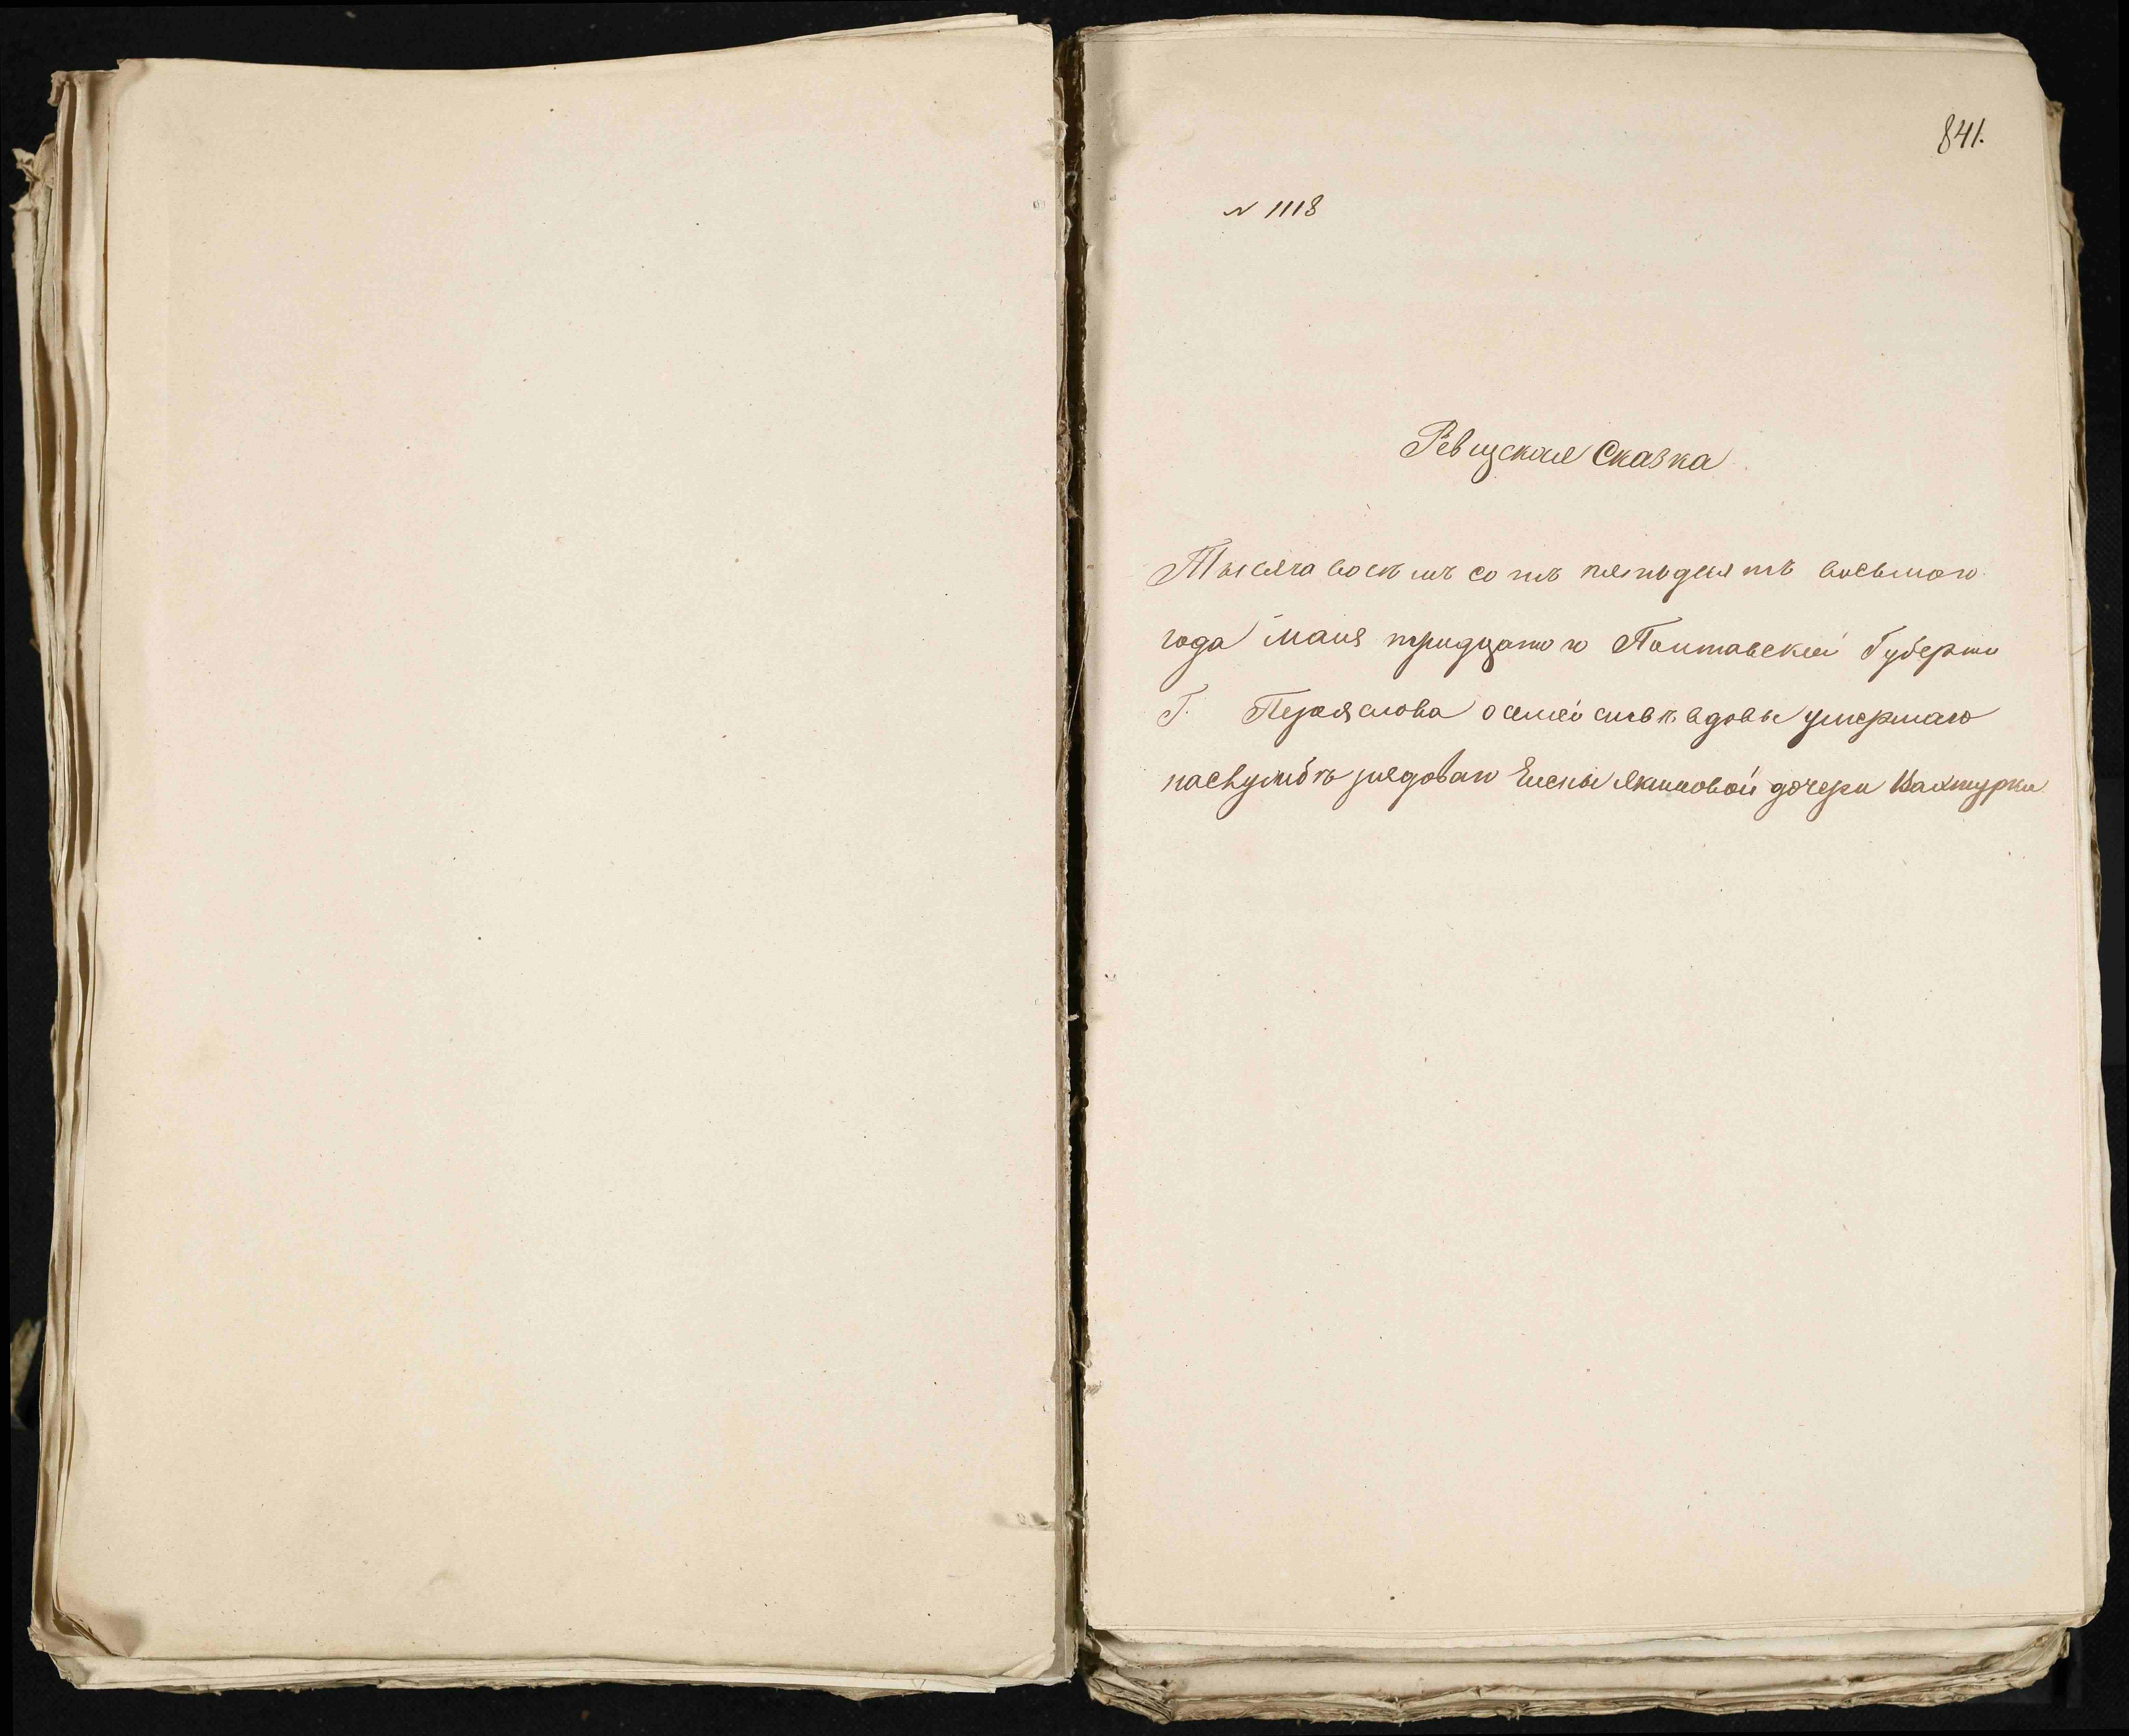 841.
№ 1118
Ревизская Сказка
Тысяча восемь сотъ пятьдесятъ восьмого
года маия тридцатого Полтавской Губерни
Г. Переяслова о вдовы умершаго
рядоваго Елены Якимовой дочери